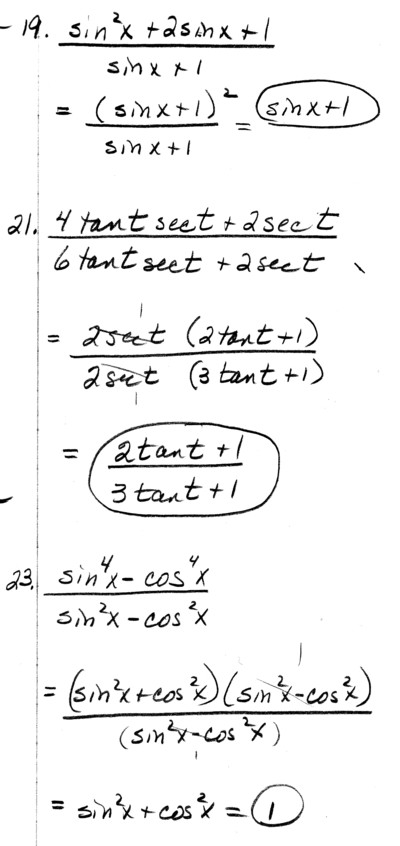 19. (sin²x + 2sinx + 1) / (sinx + 1)
= (sinx+1)² / (sinx+1) = sinx+1
21. (4 tant sect + 2 sect) / (6 tant sect + 2 sect)
= 2sect (2tant+1) / 2sect (3tant+1)
= (2tant + 1) / (3tant + 1)
23. (sin⁴x - cos⁴x) / (sin²x - cos²x)
= (sin²x+cos²x)(sin²x-cos²x) / (sin²x-cos²x)
= sin²x + cos²x = 1